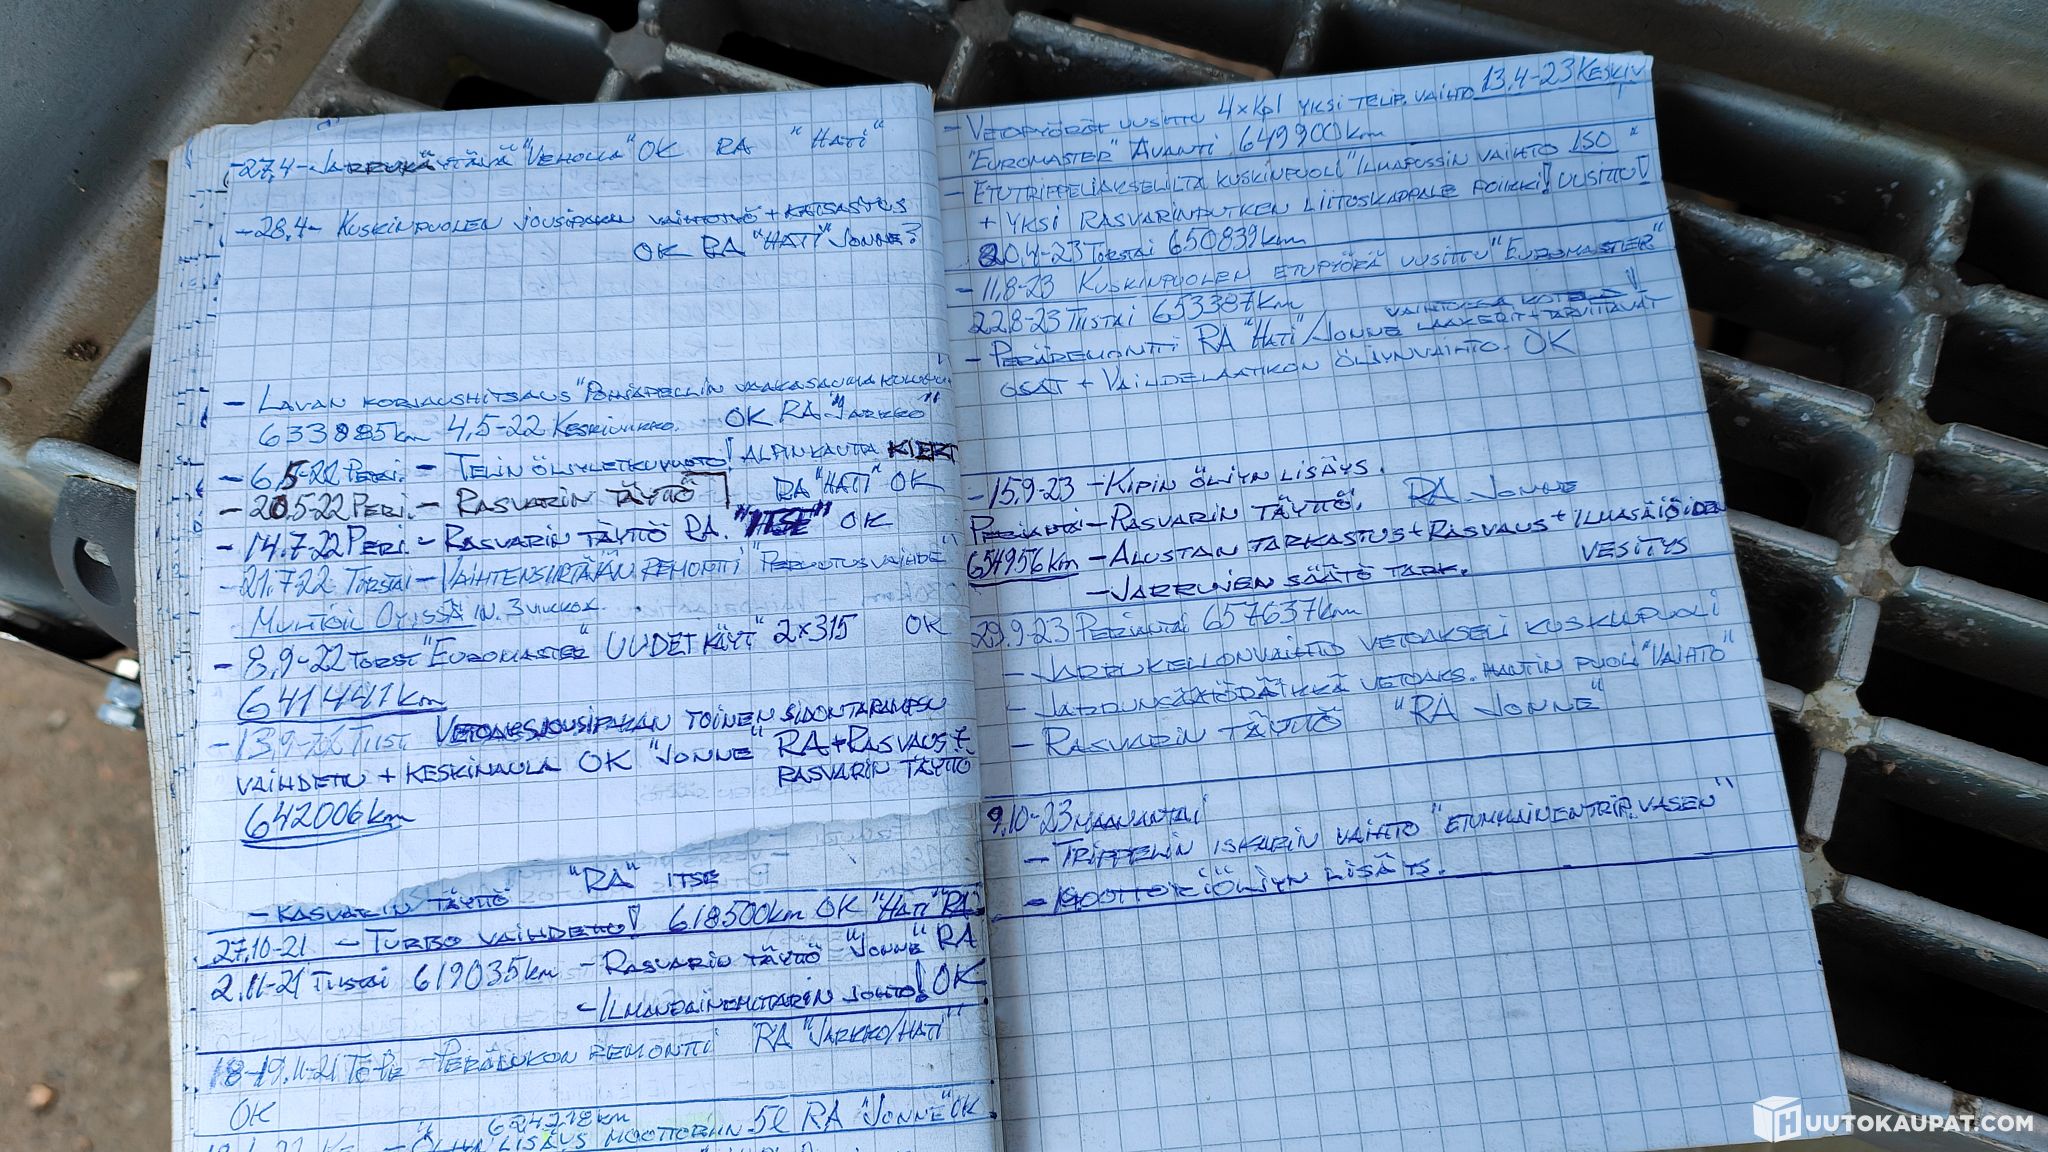 -27.4- JARRUKÄYTÄVÄ "VEHOLLA" OK RA "HATI"
-28.4- KUSKINPUOLEN JOUSIPAKAN VAIHTOTYÖ + KATSASTUS
OK RA "HATI" JONNE?
- LAVAN KORJAUSHITSAUS "POHJAPELLIN VAAKASAUMA
633885km 4.5-22 KESKIVIIKKO. OK RA "JARKKO"
- 6.5-22 PERJ. - TELIN ÖLJYLETKUVUOTO! ALPINKAUTTA KIERT
- 20.5-22 PERJ. - RASVARIN TÄYTTÖ RA "HATI" OK
- 14.7-22 PERJ - RASVARIN TÄYTTÖ RA. "ITSE" OK
- 21.7-22 TORSTAI - VAIHTENSIIRTÄJÄN REMONTTI "PERUUTUSVAIHDE"
3 VIIKKOA.
- 8.9-22 TORST "EUROMASTER" UUDET KÄYT" 2x315 OK
641441km
- 13.9-22 TIIST VETOAKSJOUSIPAKAN TOINEN SIDONTARAUTA
VAIHDETTU + KESKINAULA OK "JONNE" RA + RASVAUS +
RASVARIN TÄYTTÖ
642006km
- RASVARIN TÄYTTÖ "RA" ITSE
27.10-21 - TURBO VAIHDETTU! 618500km OK "HATI" RA"
2.11-21 TIISTAI 619035km - RASVARIN TÄYTTÖ "JONNE" RA
- ILMANPAINEMITTARIN JOHTO! OK
18-19.11-21 TO-PE - PERÄLUKON REMONTTI RA "JARKKO/HATI"
OK
624218km
- ÖLJYN LISÄYS MOOTTORIIN 5l RA "JONNE" OK.
- VETOPYÖRÄT UUSITTU 4xKpl YKSI TELIP. VAIHTO 13.4-23 KESKIV
"EUROMASTER" AVANTI 649900km
- ETUTRIPPELIAKSELILTA KUSKINPUOLI "ILMAPUSSIN VAIHTO ISO"
+ YKSI RASVARINPUTKEN LIITOSKAPPALE POIKKI! UUSITTU!
20.4-23 TORSTAI 650839km
- 11.8-23 KUSKINPUOLEN ETUPYÖRÄ UUSITTU "EUROMASTER"
22.8-23 TIISTAI 653387km
- PERÄREMONTTI RA "HATI"/JONNE LAAKERIT + TARVITTAVAT
OSAT + VAIHDELAATIKON ÖLJYNVAIHTO. OK
- 15.9-23 - KIPIN ÖLJYN LISÄYS.
PERJANTAI - RASVARIN TÄYTTÖ. RA JONNE
654956km - ALUSTAN TARKASTUS + RASVAUS + ILMASÄIÖIDEN
VESITYS
- JARRUJEN SÄÄTÖ TARK.
29.9-23 PERJANTAI 657637km
- JARRUKELLONVAIHTO VETOAKSELI KUSKINPUOLI
- JARRUNSÄÄTÖRÄIKKÄ VETOAKS. HANTIN PUOLI "VAIHTO"
- RASVARIN TÄYTTÖ "RA JONNE"
9.10-23 MAANANTAI
- TRIPPELIN ISKARIN VAIHTO "ETUMMAINEN TRIP. VASEN"
- MOOTTORIÖLJYN LISÄYS.
HUUTOKAUPAT.COM